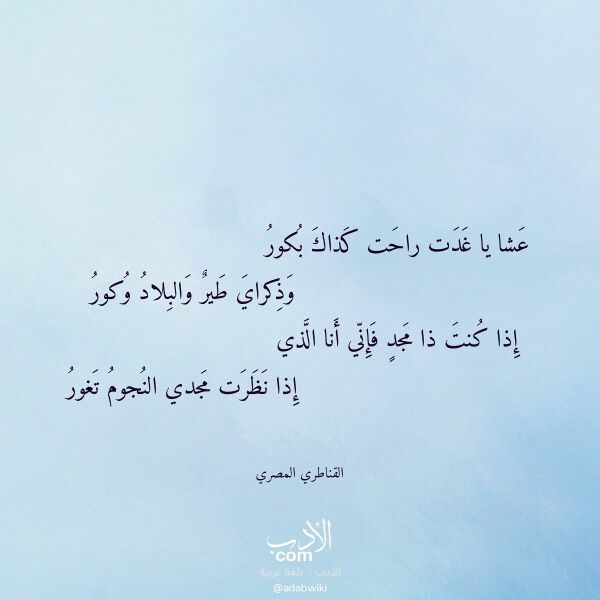 عَشا يا غَدَت راحَت كَذاكَ بُكورُ
وَذِكرايَ طَيرٌ وَالبِلادُ وُكورُ
إِذا كُنتَ ذا مَجدٍ فَإِنّي أَنا الَّذي
إِذا نَظَرَت مَجدي النُجومُ تَغورُ
القناطري المصري
الأدب
com
الأدب .. بلغة عربية
@adabwiki